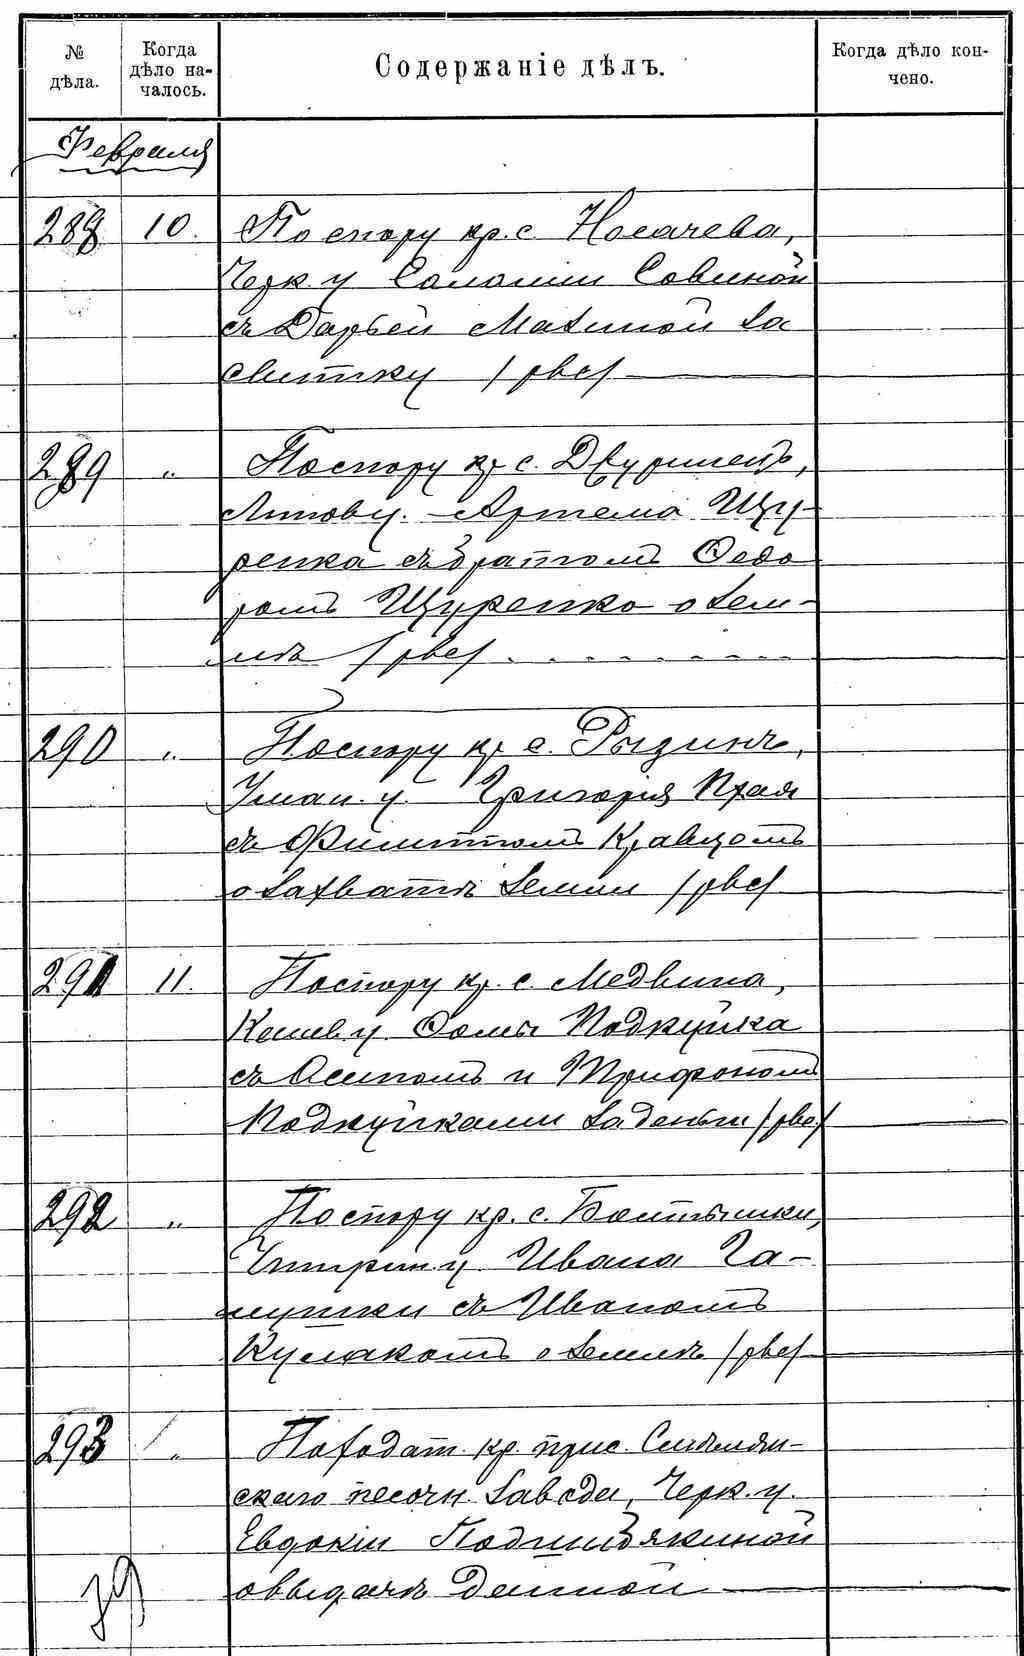 № дѣла.
Когда дѣло началось.
Содержаніе дѣлъ.
Когда дѣло кончено.
Февраля
288 10. По спору кр. с. Носачева,
Черк. у. Саломии Савиной
съ Дарьей Мазиной за
свитку /рвс/
289 „ По спору кр. с. Двуринецъ,
Липов. у. Артема Щу-
ренка съ братомъ Ѳедо
ромъ Щуренко о зем-
лѣ /рвс/
290 „ По спору кр. с. Рызинъ,
Уман. у. Григорія
съ Филиппомъ Кравцомъ
о захватѣ земли /рвс/
291 11. По спору кр. с. Медвина,
Канев. у. Ѳомы Подкуйка
съ Осипомъ и Трифономъ
Подкуйками за деньги /рвс/
292 „ По спору кр. с. Болтышки,
Чигирин. у. Ивана Га-
мушки съ Иваномъ
Кулакомъ о землѣ /рвс/
293 „ По ходат. кр. прис. Смѣлян-
скаго песочн. завода, Черк. у.
Евдокіи
о выдачѣ данной